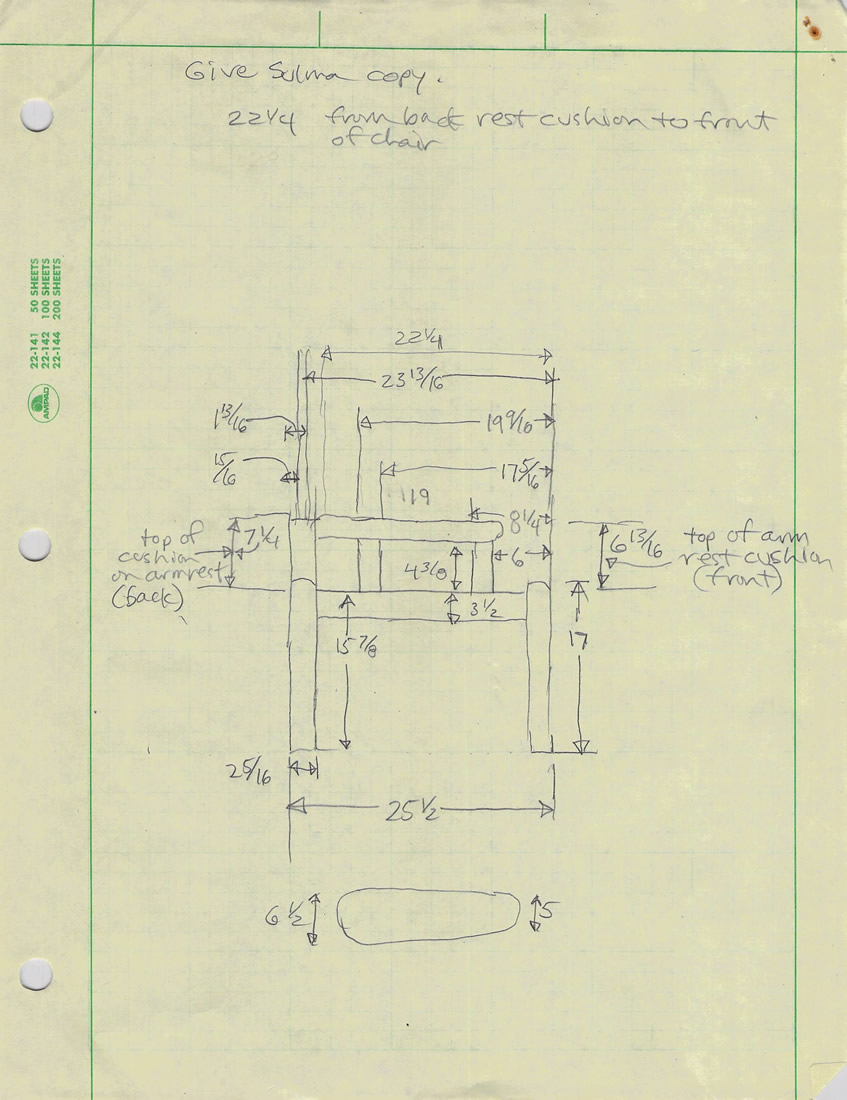 Give Sulma copy.
22 1/4 from back rest cushion to front
of chair
22-141 50 SHEETS
22-142 100 SHEETS
22-144 200 SHEETS
AMPAD
22 1/4
23 13/16
1 13/16
19 9/16
15/16
17 5/16
119
8 1/4
top of
cushion
on armrest
(back)
7 1/4
6 13/16
top of arm
rest cushion
(front)
4 3/8
6
3 1/2
15 7/8
17
2 5/16
25 1/2
6 1/2
5